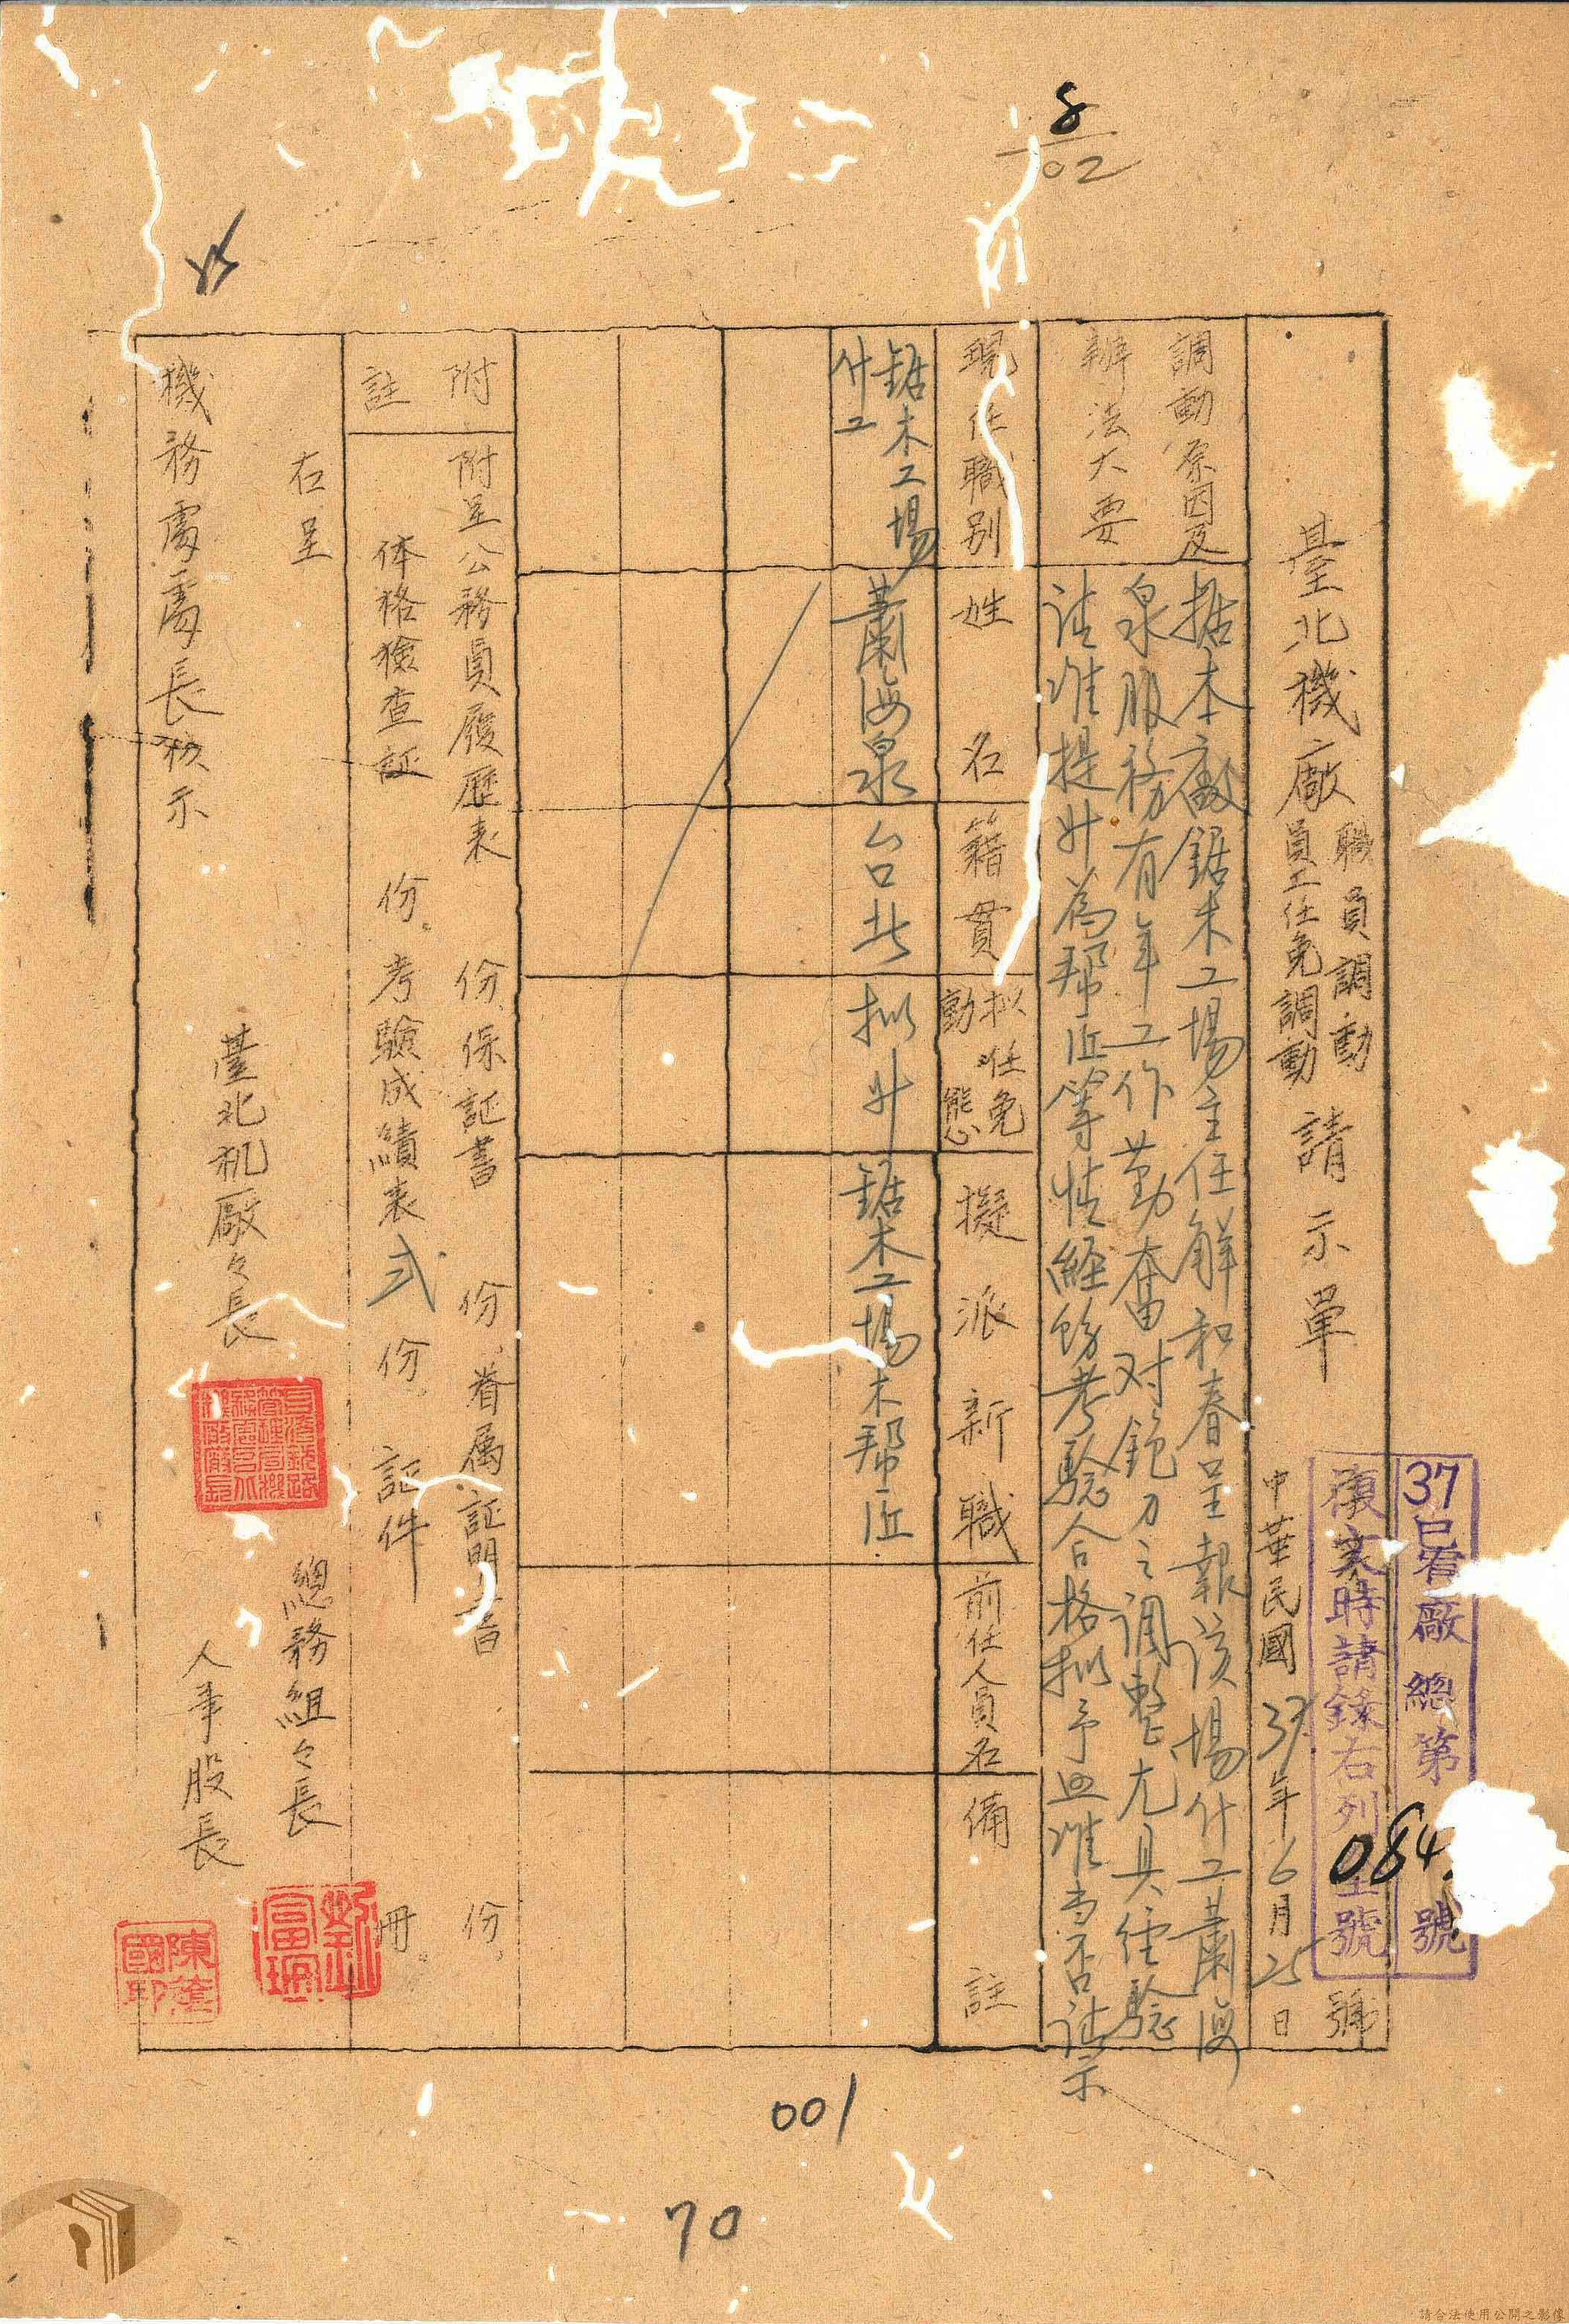 8
02
37已宥廠總第
084
號
復文時請錄右列
號
號
臺北機廠
職員調動
員工任免調動
請示單
中華民國37年6月25日
調動原因及
辦法大要
据本廠鋸木工場主任解和春呈報該場什工蕭海
泉服務有年工作勤奮对鉋刀之調整尤具經驗
請准提升為帮匠等情経飭考驗合格拟予照准当否请示
現任職別
姓名
籍貫
拟任免
動態
擬派新職
前任人員名
備註
鋸木工場
什工
蕭海泉
台北
拟升
鋸木工場木帮匠
附註
附呈公務員履歷表 份、保証書 份、眷属証明書 份、
体格檢查証 份。考驗成績表 弍 份。証件 冊。
右呈
機務處處長核示
臺北机廠々長
總務組々長
人事股長
劉富瑜
001
70
請合法使用公開之影像